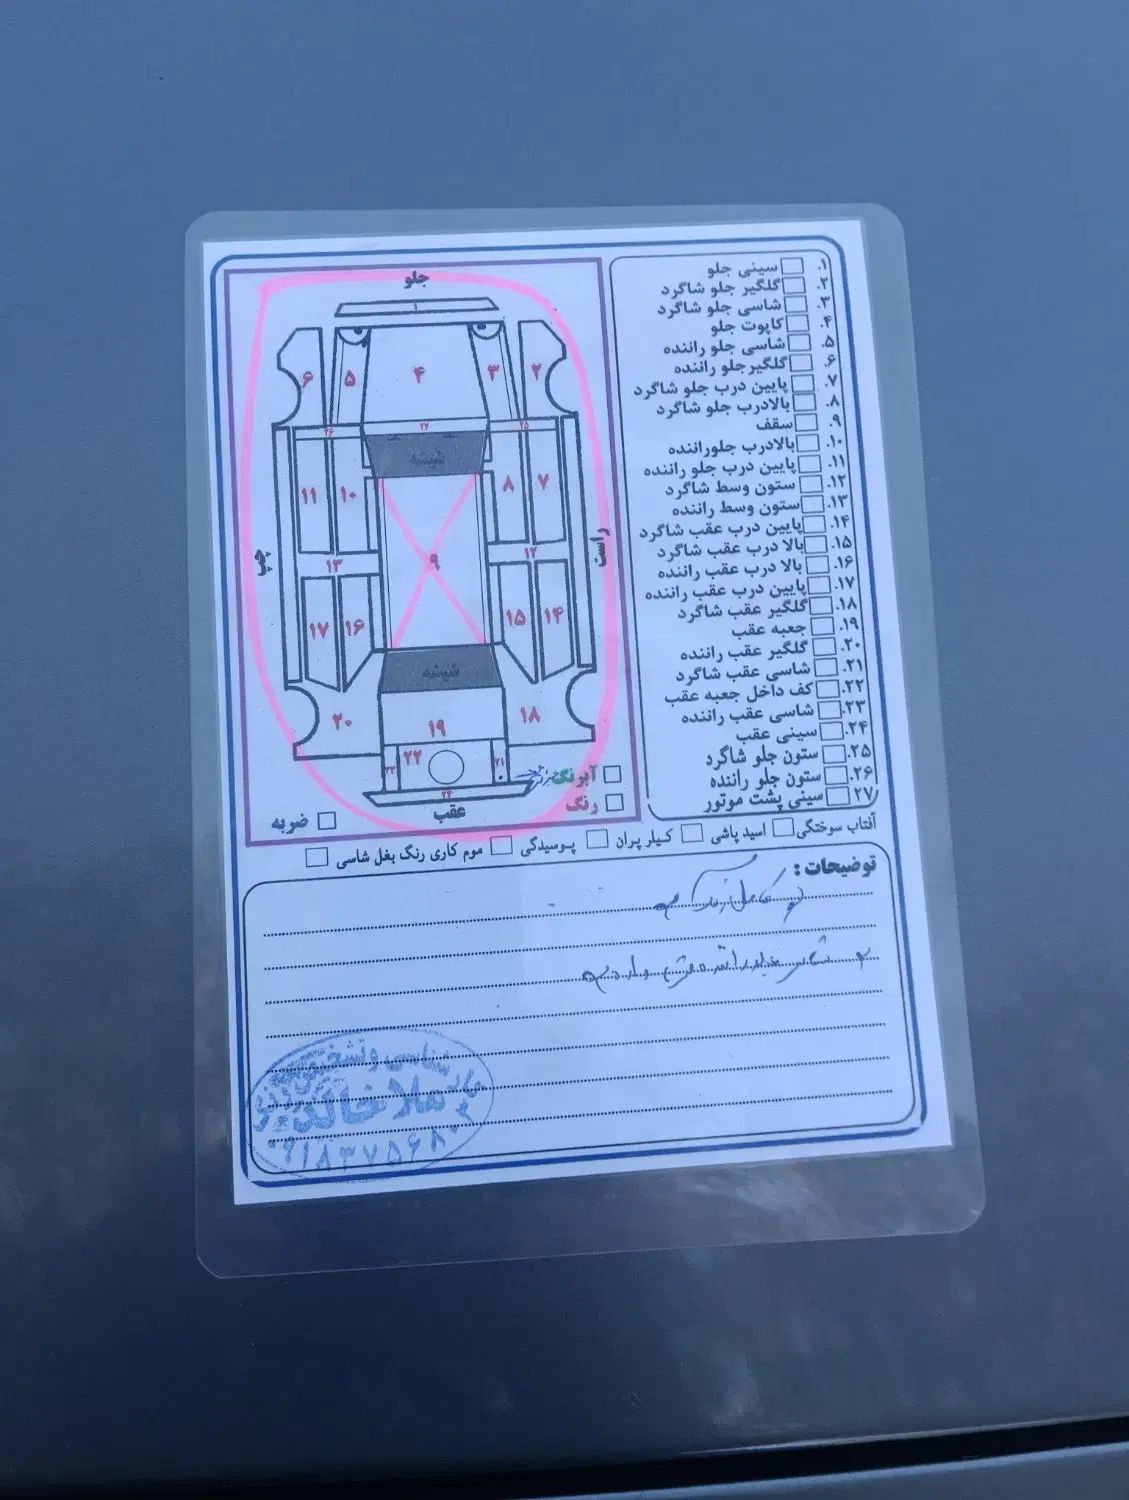 جلو
۱
۶ ۵ ۴ ۳ ۲
۲۶ ۲۷ ۲۵
شیشه
۱۱ ۱۰ ۸ ۷
چپ ۹ راست
۱۳ ۱۲
۱۷ ۱۶ ۱۵ ۱۴
شیشه
۲۰ ۱۹ ۱۸
۲۳ ۲۲ ۲۱
۲۴
عقب
آبرنگ
رنگ
ضربه
۱. سینی جلو
۲. گلگیر جلو شاگرد
۳. شاسی جلو شاگرد
۴. کاپوت جلو
۵. شاسی جلو راننده
۶. گلگیرجلو راننده
۷. پایین درب جلو شاگرد
۸. بالادرب جلو شاگرد
۹. سقف
۱۰. بالادرب جلوراننده
۱۱. پایین درب جلو راننده
۱۲. ستون وسط شاگرد
۱۳. ستون وسط راننده
۱۴. پایین درب عقب شاگرد
۱۵. بالا درب عقب شاگرد
۱۶. بالا درب عقب راننده
۱۷. پایین درب عقب راننده
۱۸. گلگیر عقب شاگرد
۱۹. جعبه عقب
۲۰. گلگیر عقب راننده
۲۱. شاسی عقب شاگرد
۲۲. کف داخل جعبه عقب
۲۳. شاسی عقب راننده
۲۴. سینی عقب
۲۵. ستون جلو شاگرد
۲۶. ستون جلو راننده
۲۷. سینی پشت موتور
آفتاب سوختگی اسید پاشی کیلر پران پوسیدگی موم کاری رنگ بغل شاسی
توضیحات :
شناسی و تشخیص
ملا خالد